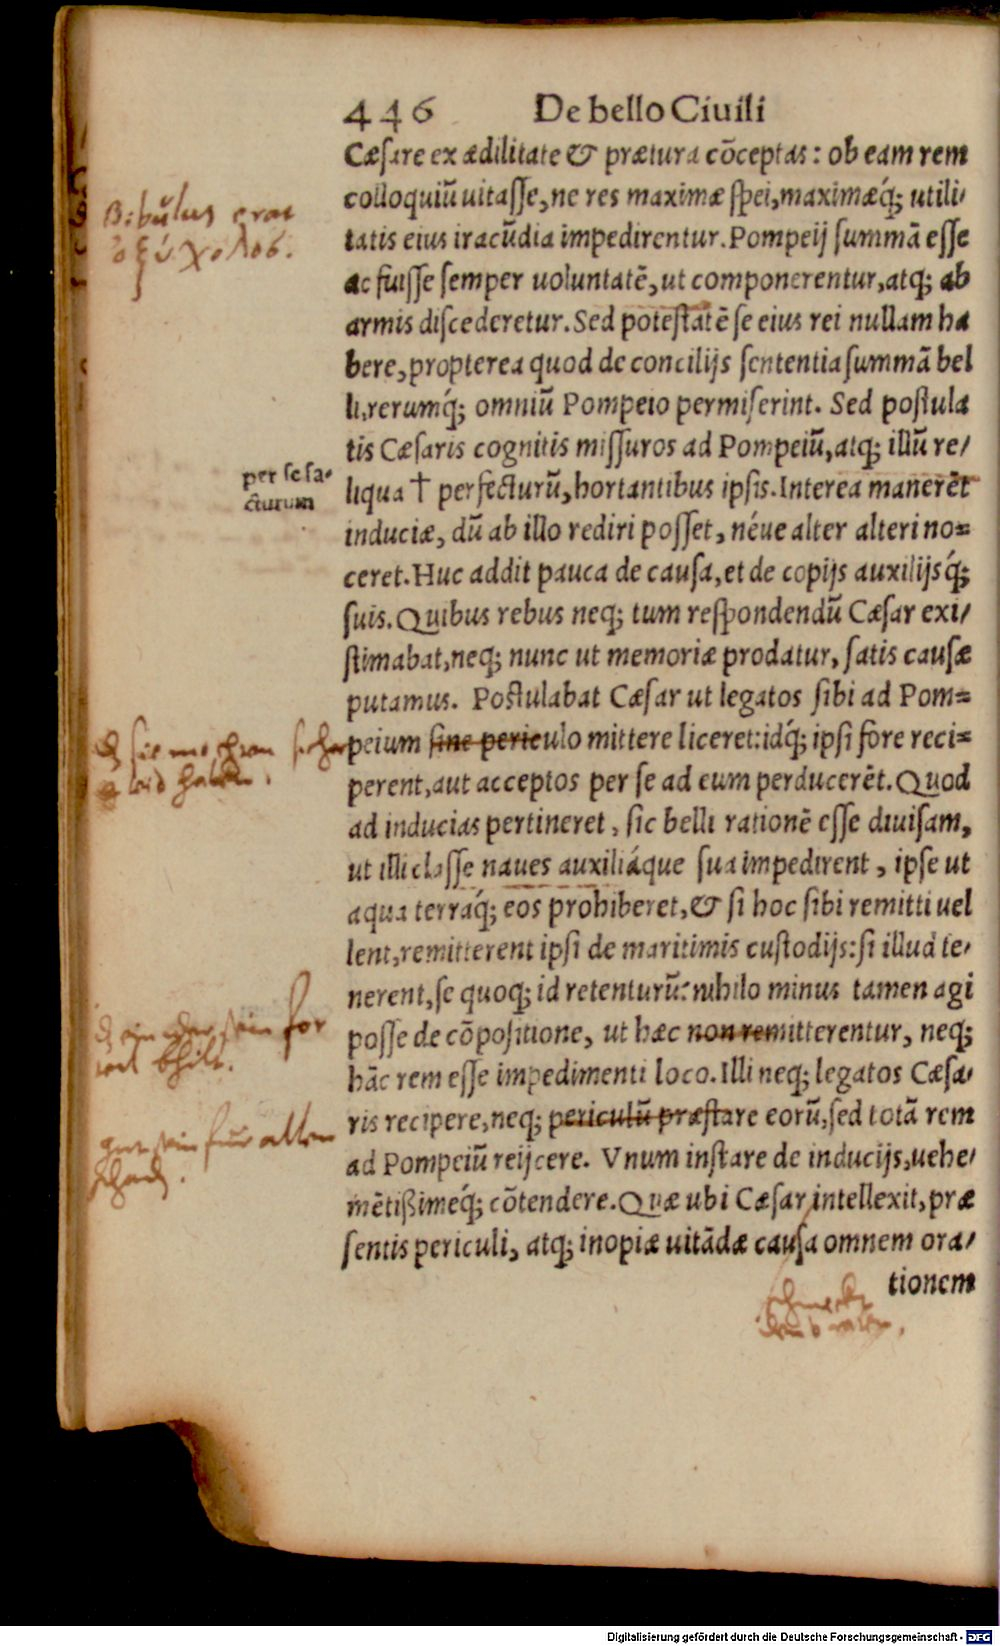 446 De bello Ciuili
Cæſare ex ædilitate & prætura cōceptas: ob eam rem
colloquiū uitaſſe, ne res maximæ ſpei, maximæq́; utili/
tatis eius iracūdia impedirentur. Pompeij ſummā eſſe
ac fuiſſe ſemper uoluntatē, ut componerentur, atq; ab
armis diſcederetur. Sed poteſtatē ſe eius rei nullam ha
bere, propterea quod de concilijs ſententia ſummā bel
li, rerumq́; omniū Pompeio permiſerint. Sed poſtula
tis Cæſaris cognitis miſſuros ad Pompeiū, atq; illū re/
liqua † perfecturū, hortantibus ipſis. Interea manerēt
induciæ, dū ab illo rediri poſſet, néue alter alteri no=
ceret. Huc addit pauca de cauſa, et de copijs auxilijsq́;
ſuis. Quibus rebus neq; tum reſpondendū Cæſar exi/
ſtimabat, neq; nunc ut memoriæ prodatur, ſatis cauſæ
putamus. Poſtulabat Cæſar ut legatos ſibi ad Pom=
peium ſine periculo mittere liceret: idq́; ipſi fore reci=
perent, aut acceptos per ſe ad eum perducerēt. Quod
ad inducias pertineret, ſic belli rationē eſſe diuiſam,
ut illi claſſe naues auxiliáque ſua impedirent, ipſe ut
aqua terráq́; eos prohiberet, & ſi hoc ſibi remitti uel
lent, remitterent ipſi de maritimis cuſtodijs: ſi illud te/
nerent, ſe quoq; id retenturū: nihilo minus tamen agi
poſſe de cōpoſitione, ut hæc non remitterentur, neq;
hāc rem eſſe impedimenti loco. Illi neq; legatos Cæſa/
ris recipere, neq; periculū præſtare eorū, ſed totā rem
ad Pompeiū reijcere. Vnum inſtare de inducijs, uehe/
mētißimeq́; cōtendere. Quæ ubi Cæſar intellexit, præ
ſentis periculi, atq; inopiæ uitādæ cauſa omnem ora/
tionem
Bibulus erat
ὀξύχολος.
per ſe fa-
cturum
gut sein fur allen
Digitalisierung gefördert durch die Deutsche Forschungsgemeinschaft - DFG